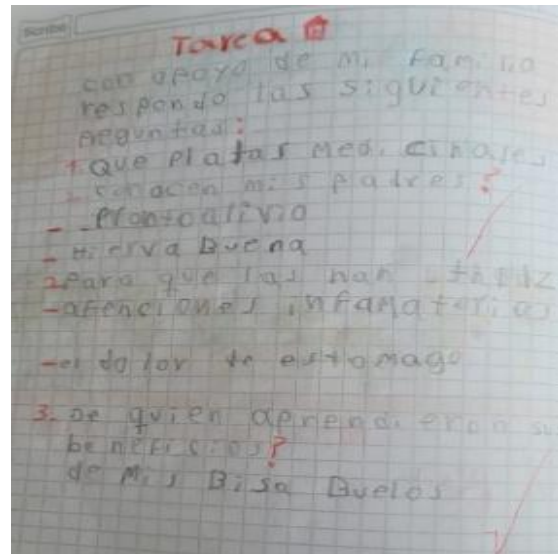 Scribe
Tarea
con apoyo de mi familia
respondo las siguientes
preguntas:
1. Que platas medicinales
conocen mis padres?
- Prontoalivio
- Hierva Buena
2 Para que las han
- afenciones infamatorias
- el dolor de estomago
3. De quien aprendieron su
beneficios?
de mis Bisa Buelos